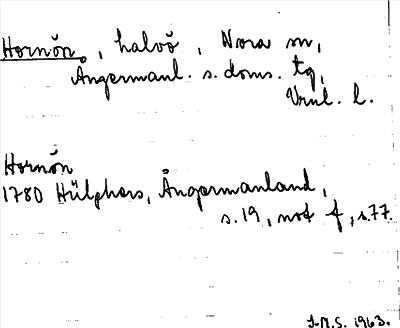 Hornön, halvö, Nora sn,
Ångermanl. s. doms. tg,
Vnl. l.
Hornön
1780 Hülphers, Ångermanland,
s. 19, not f, s. 77.
I.M.S. 1963.